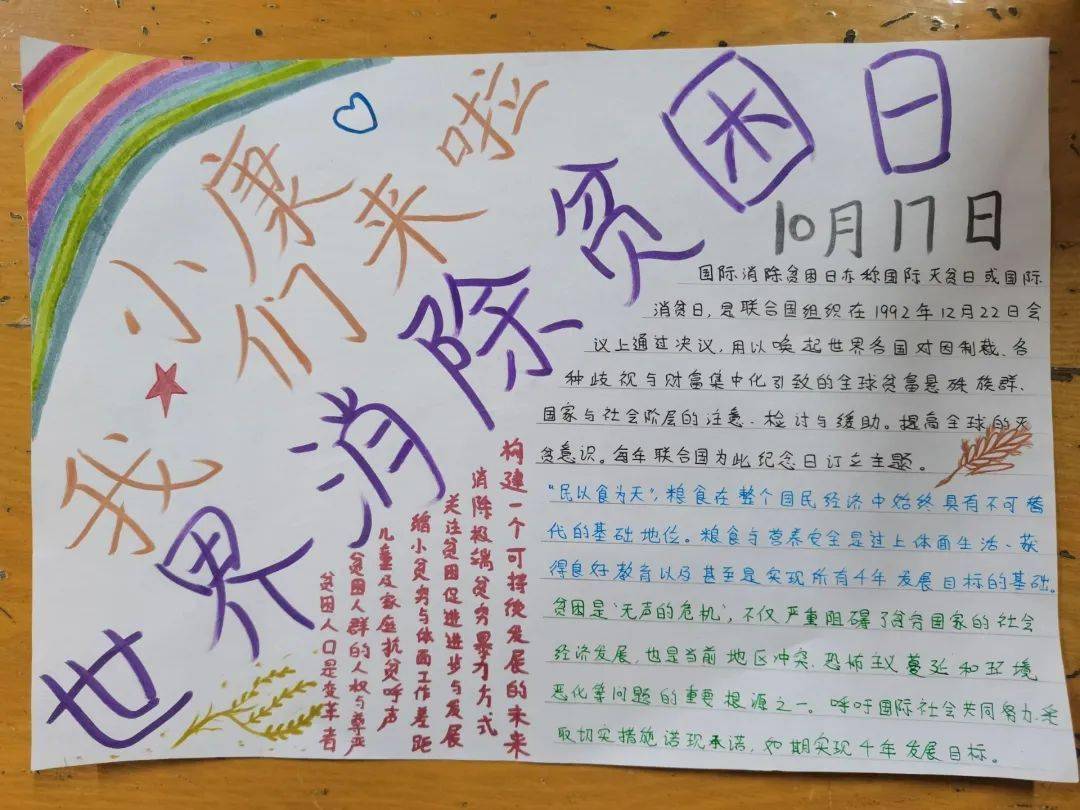 小康
我们来啦
世界消除贫困日
10月17日
国际消除贫困日亦称国际灭贫日或国际
消贫日,是联合国组织在1992年12月22日会
议上通过决议,用以唤起世界各国对因制裁、各
种歧视与财富集中化引致的全球贫富悬殊族群、
国家与社会阶层的注意、检讨与援助。提高全球的灭
贫意识。每年联合国为此纪念日订立主题。
“民以食为天”,粮食在整个国民经济中始终具有不可替
代的基础地位。粮食与营养安全是过上体面生活、获
得良好教育以及甚至是实现所有千年发展目标的基础。
贫困是‘无声的危机’,不仅严重阻碍了贫穷国家的社会
经济发展,也是当前地区冲突、恐怖主义蔓延和环境
恶化等问题的重要根源之一。呼吁国际社会共同努力,采
取切实措施诺现承诺,如期实现千年发展目标。
构建一个可持续发展的未来
消除极端贫穷暴力方式
关注贫困促进进步与发展
缩小贫穷与体面工作差距
儿童及家庭抗贫呼声
贫困人群的人权与尊严
贫困人口是变革者